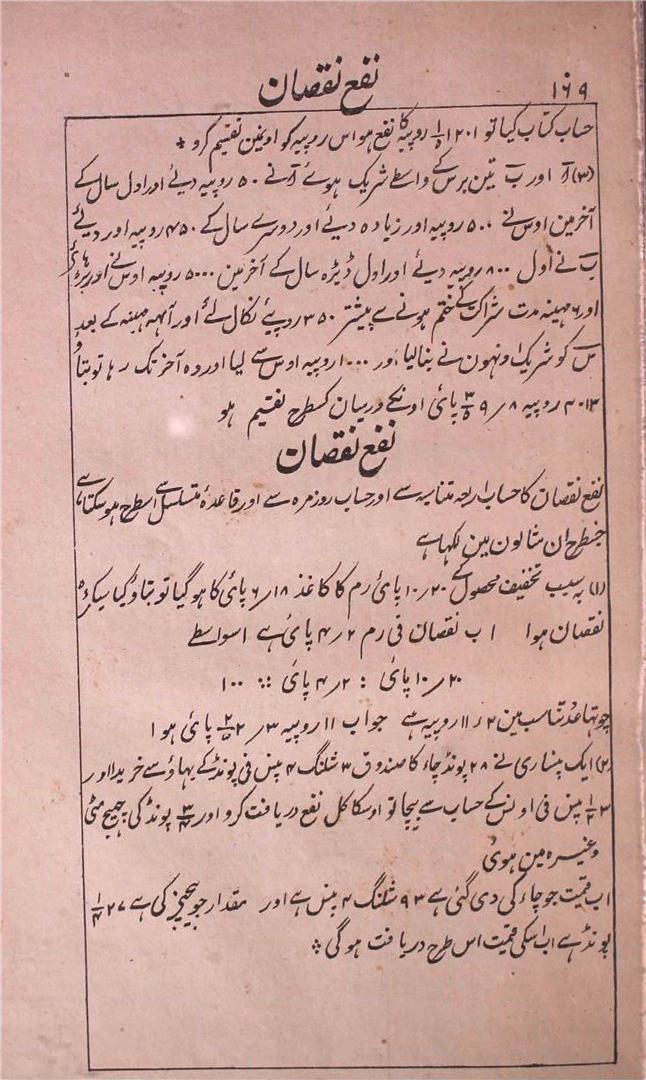 ۱۶۹
نفع نقصان
حساب کتاب کیا تو ۱۲۰۱ ۱/۵ روپیہ کا نفع ہوا اس روپیہ کو اونمین تقسیم کرو *
(۳) آ اور ب تین برس کے واسطے شریک ہوے آ نے ۵۰ روپیہ دیے اور اول سال کے
آخر مین اوس نے ۵۰۰ روپیہ اور زیادہ دیے اور دوسرے سال کے ۴۵۰ روپیہ اور دیے
ب نے اول ۸۰۰ روپیہ دیے اور اول ڈیڑہ سال کے آخر مین ۵۰۰۰ روپیہ اوس نے اور
اور ۶ مہینہ مدت شراکت کے ختم ہونے سے پیشتر ۳۵۰ روپیے نکال لئے اور آٹہہ مہینہ کے بعد
س کو شریک اونہون نے بنا لیا اور ۱۰۰۰ روپیہ اوس سے لیا اور وہ آخر تک رہا تو بتاؤ
۴۰۱۳ روپیہ ۸ ر ۹ ۳/۵ پائی اونکے درمیان کسطرح تقسیم ہو
نفع نقصان
نفع نقصان کا حساب اربعہ متناسبہ سے اور حساب روزمرہ سے اور قاعدہ متسلسل سے اسطرح ہو سکتا ہے
جسطرح ان مثالون مین لکہا ہے
(۱) بہ سبب تخفیف محصول کے ۲۰ ر ۱۰ پائی رم کا کاغذ ۱۸ ر ۶ پائی کا ہو گیا تو بتاؤ کیا سیکڑہ
نقصان ہوا اب نقصان فی رم ۲ ر ۴ پائی ہے اسواسطے
۲۰ ر ۱۰ پائی : ۲ ر ۴ پائی :: ۱۰۰
چوتہا عدد تناسب مین ۲ ر ۱۱ روپیہ ہے جواب ۱۱ روپیہ ۳ ر ۲ ۲/۵ پائی ہوا
(۲) ایک پنساری نے ۲۸ پونڈ چاء کا صندوق ۳ شلنگ ۴ پنس فی پونڈ کے بہاؤ سے خریدا اور
۳ ۱/۲ پنس فی اونس کے حساب سے بیچا تو اوسکا کل نفع دریافت کرو اور ۳/۴ پونڈ کی چہیج مٹی
وغیرہ مین ہوئی
اب قیمت جو چاء کی دی گئی ہے ۹۳ شلنگ ۴ پنس ہے اور مقدار جو بیچنے کی ہے ۲۷ ۱/۴
پونڈ ہے اب اسکی قیمت اس طرح دریافت ہو گی *